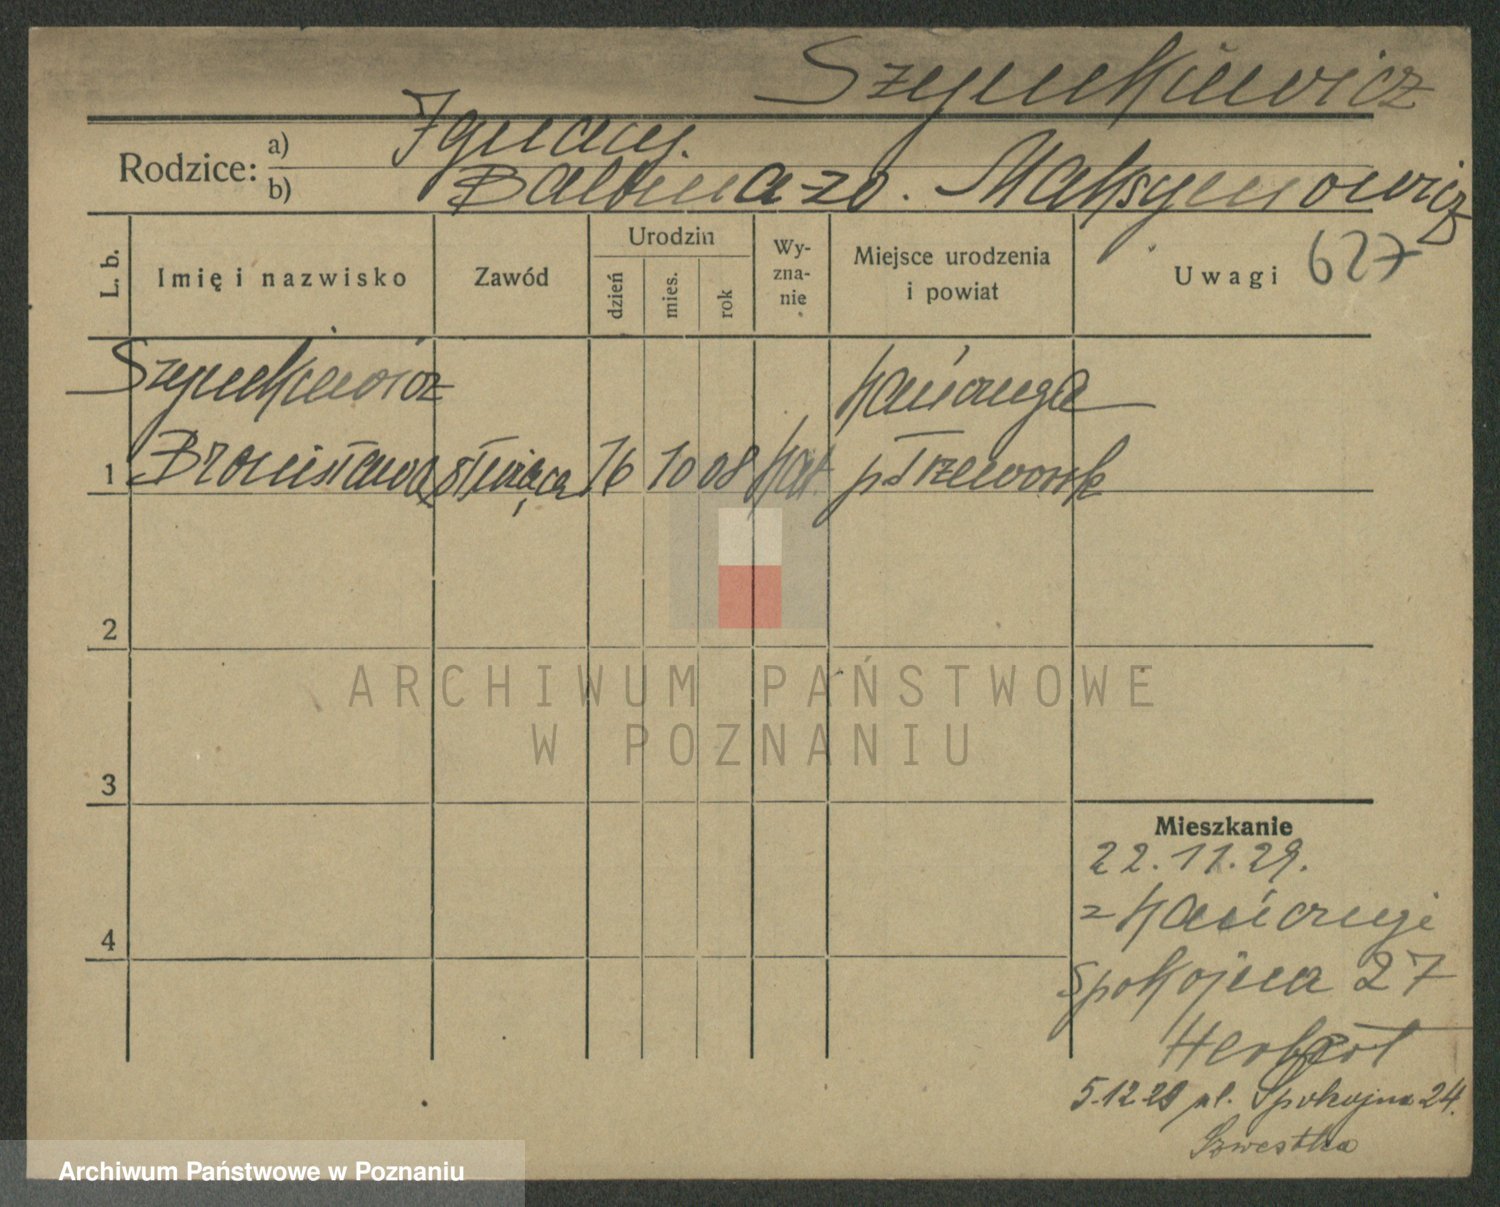 Szymkiewicz
Rodzice: a) Ignacy.
b) Balbina zd. Maksymowicz
L. b. Imię i nazwisko Zawód Urodzin dzień mies. rok Wyznanie Miejsce urodzenia i powiat Uwagi 627
Szymkiewicz Kańczuga
1 Bronisława służąca 16 10 08 kat. p. Przeworsk
2
ARCHIWUM PAŃSTWOWE
W POZNANIU
3
Mieszkanie
22.11.29.
z Kańczugi
4
Spokojna 27
Herbert
5.12.29 ul. Spokojna 24.
Archiwum Państwowe w Poznaniu